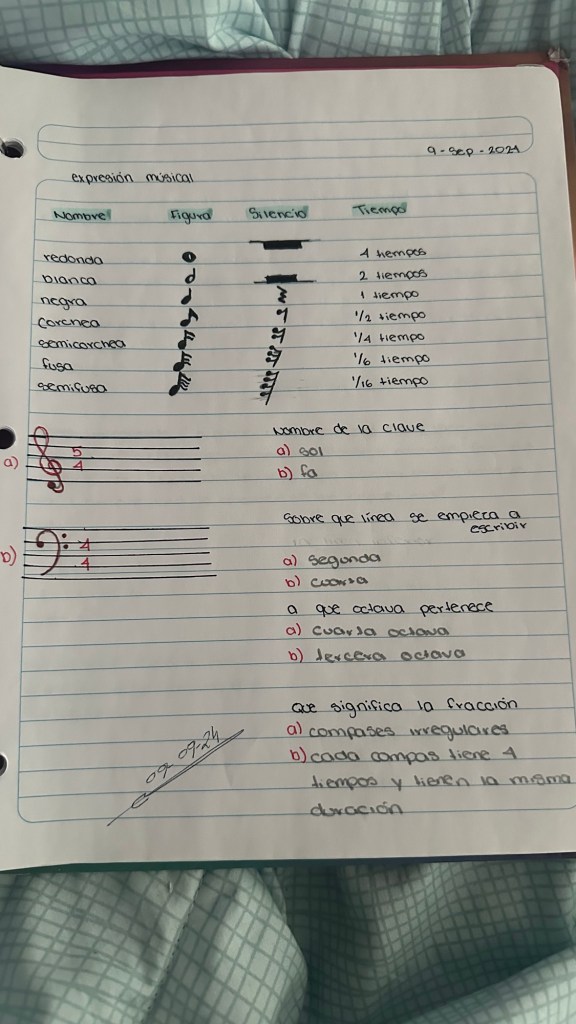 9-Sep-2024
expresión músical
Nombre Figura Silencio Tiempo
redonda 4 tiempos
blanca 2 tiempos
negra 1 tiempo
corchea 1/2 tiempo
semicorchea 1/4 tiempo
fusa 1/6 tiempo
semifusa 1/16 tiempo
Nombre de la clave
a) 5 4
a) sol
b) fa
Sobre que línea se empieza a escribir
b) 4 4
a) segunda
b) cuarta
a que octava pertenece
a) cuarta octava
b) tercera octava
que significa la fracción
a) compases irregulares
b) cada compas tiene 4
tiempos y tienen la misma
duración
09-09-24